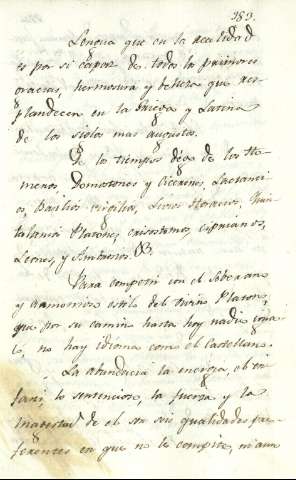 389.
Lengua que en la actualidad
es por si capaz de todos los primores
gracias, hermosura y belleza que res-
plandecen en la Griega y Latina
de los siglos mas augustos.
De los tiempos digo de los Ho-
meros, Demostenes y Cicerones, Lactanci
os, Basilios Virgilios, Livios Horacios, Quin-
tilianos Platones, Crisostomos, Ciprianos,
Leones, y Ambrosios.
Para competir con el Soberano
y armonioso estilo del divino Platon,
que por su camino hasta hoy nadie igua-
lo, no hay idioma como el Castellano.
La abundancia la energia, el
lo sentencioso, la fuerza y la
magestad de el son sus qualidades pre-
ferentes en que no le compite, ni aun